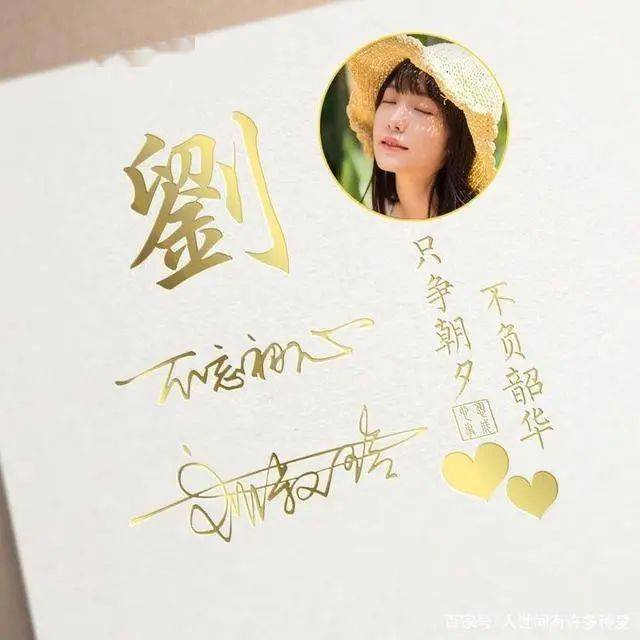 劉
不忘初心
只争朝夕
不负韶华
百家号 人世间有许多种爱